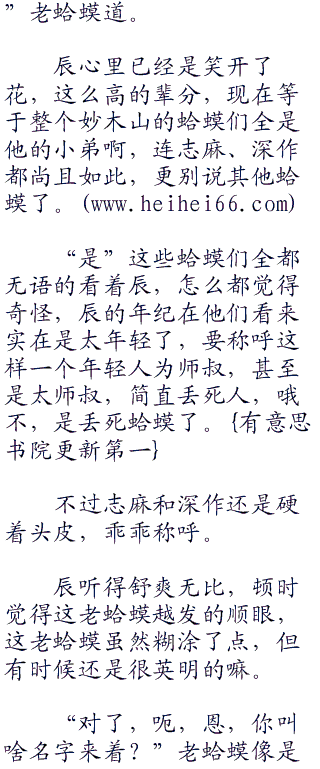 ”老蛤蟆道。
辰心里已经是笑开了
花，这么高的辈分，现在等
于整个妙木山的蛤蟆们全是
他的小弟啊，连志麻、深作
都尚且如此，更别说其他蛤
蟆了。(www.heihei66.com)
“是”这些蛤蟆们全都
无语的看着辰，怎么都觉得
奇怪，辰的年纪在他们看来
实在是太年轻了，要称呼这
样一个年轻人为师叔，甚至
是太师叔，简直丢死人，哦
不，是丢死蛤蟆了。{有意思
书院更新第一}
不过志麻和深作还是硬
着头皮，乖乖称呼。
辰听得舒爽无比，顿时
觉得这老蛤蟆越发的顺眼，
这老蛤蟆虽然糊涂了点，但
有时候还是很英明的嘛。
“对了，呃，恩，你叫
啥名字来着？”老蛤蟆像是